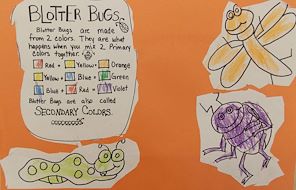 BLOTTER BUGS
Blotter Bugs are made
from 2 colors. They are what
happens when you mix 2 Primary
Colors together.
Red + Yellow = Orange
Yellow + Blue = Green
Blue + Red = Violet
Blotter Bugs are also called
SECONDARY COLORS.